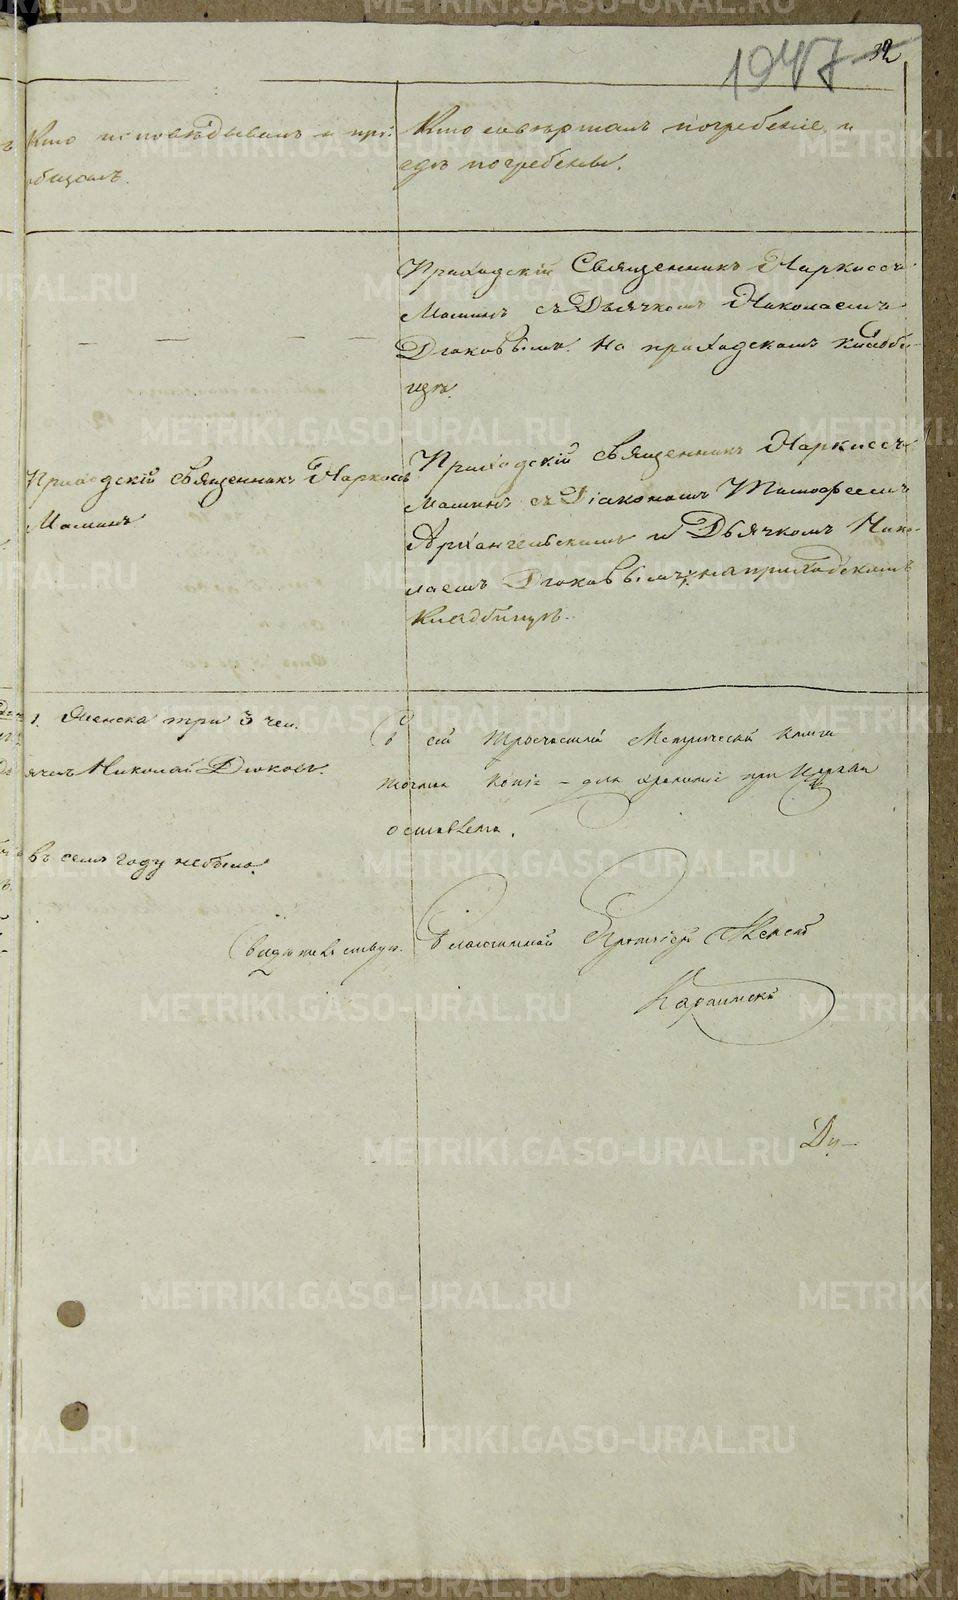 1947
32
Кто исповѣдывалъ и прі-
общалъ.
Кто совершалъ погребеніе и
гдѣ погребены.
Приходскій Священникъ Наркиссъ
Мошинъ съ Дьячкомъ Николаемъ
Дюковымъ. На приходскомъ кладби-
щѣ.
Приходскій Священникъ Наркисъ
Мошинъ
Приходскій Священникъ Наркиссъ
Мошинъ съ Діакономъ Тимофеемъ
Архангельскимъ и Дьячкомъ Нико-
лаемъ Дюковымъ; на приходскомъ
Кладбищѣ.
1. Женска три 3 чел.
ячекъ Николай Дюковъ.
въ семъ году небыло.
съ сей Троечастной Метрической книги
точная копія – для храненія при Церкви
оставлена.
Свидѣтельствую. Благочинный Протоіерей
Ду-
METRIKI.GASO-URAL.RU